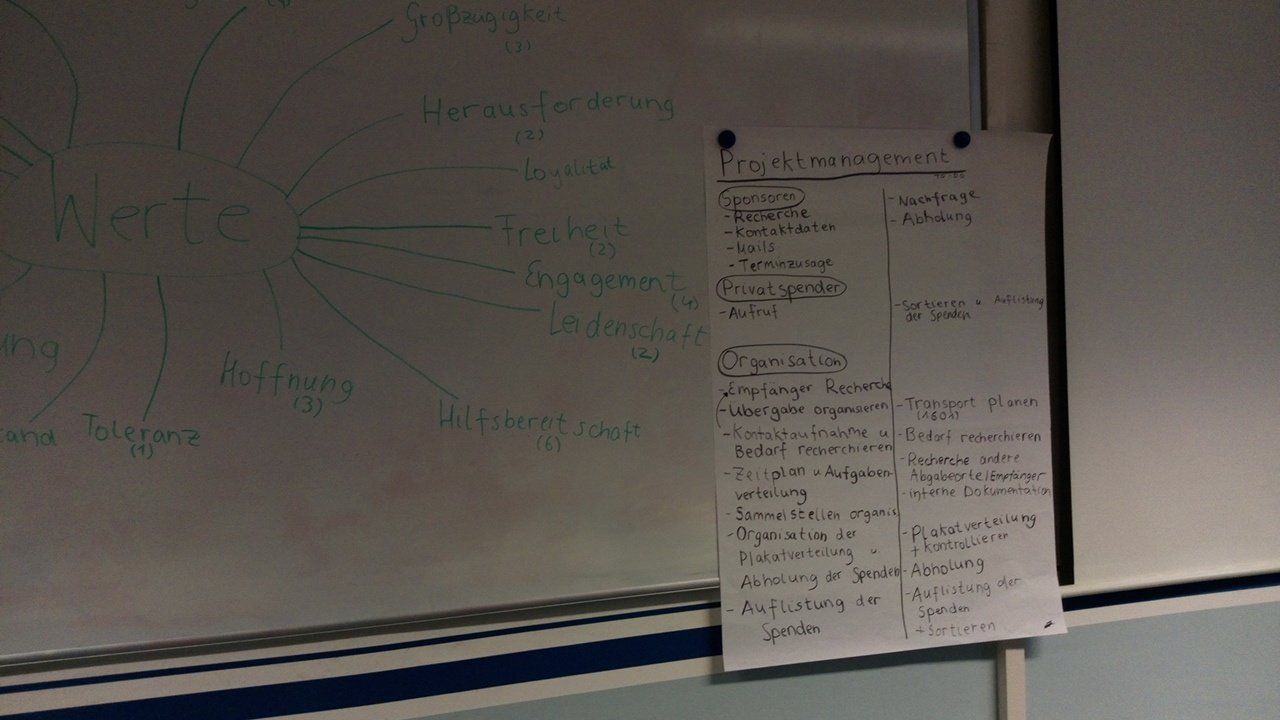 Großzügigkeit
(3)
Herausforderung
(2)
Loyalität
Freiheit
(2)
Engagement
(4)
Leidenschaft
(2)
Hilfsbereitschaft
(6)
Hoffnung
(3)
Toleranz
(1)
Werte
Projektmanagement
Sponsoren
- Recherche
- Kontaktdaten
- Mails
- Terminzusage
Privatspender
- Aufruf
Organisation
- Empfänger Recherche
- Übergabe organisieren
- Kontaktaufnahme u
Bedarf recherchieren
- Zeitplan u Aufgaben-
verteilung
- Sammelstellen organis
- Organisation der
Plakatverteilung u
Abholung der Spenden
- Auflistung der
Spenden
- Nachfrage
- Abholung
- Sortieren u Auflistung
der Spenden
- Transport planen
- Bedarf recherchieren
- Recherche andere
Abgabeorte/Empfänger
- interne Dokumentation
- Plakatverteilung
+ kontrollieren
- Abholung
- Auflistung der
Spenden
+ Sortieren